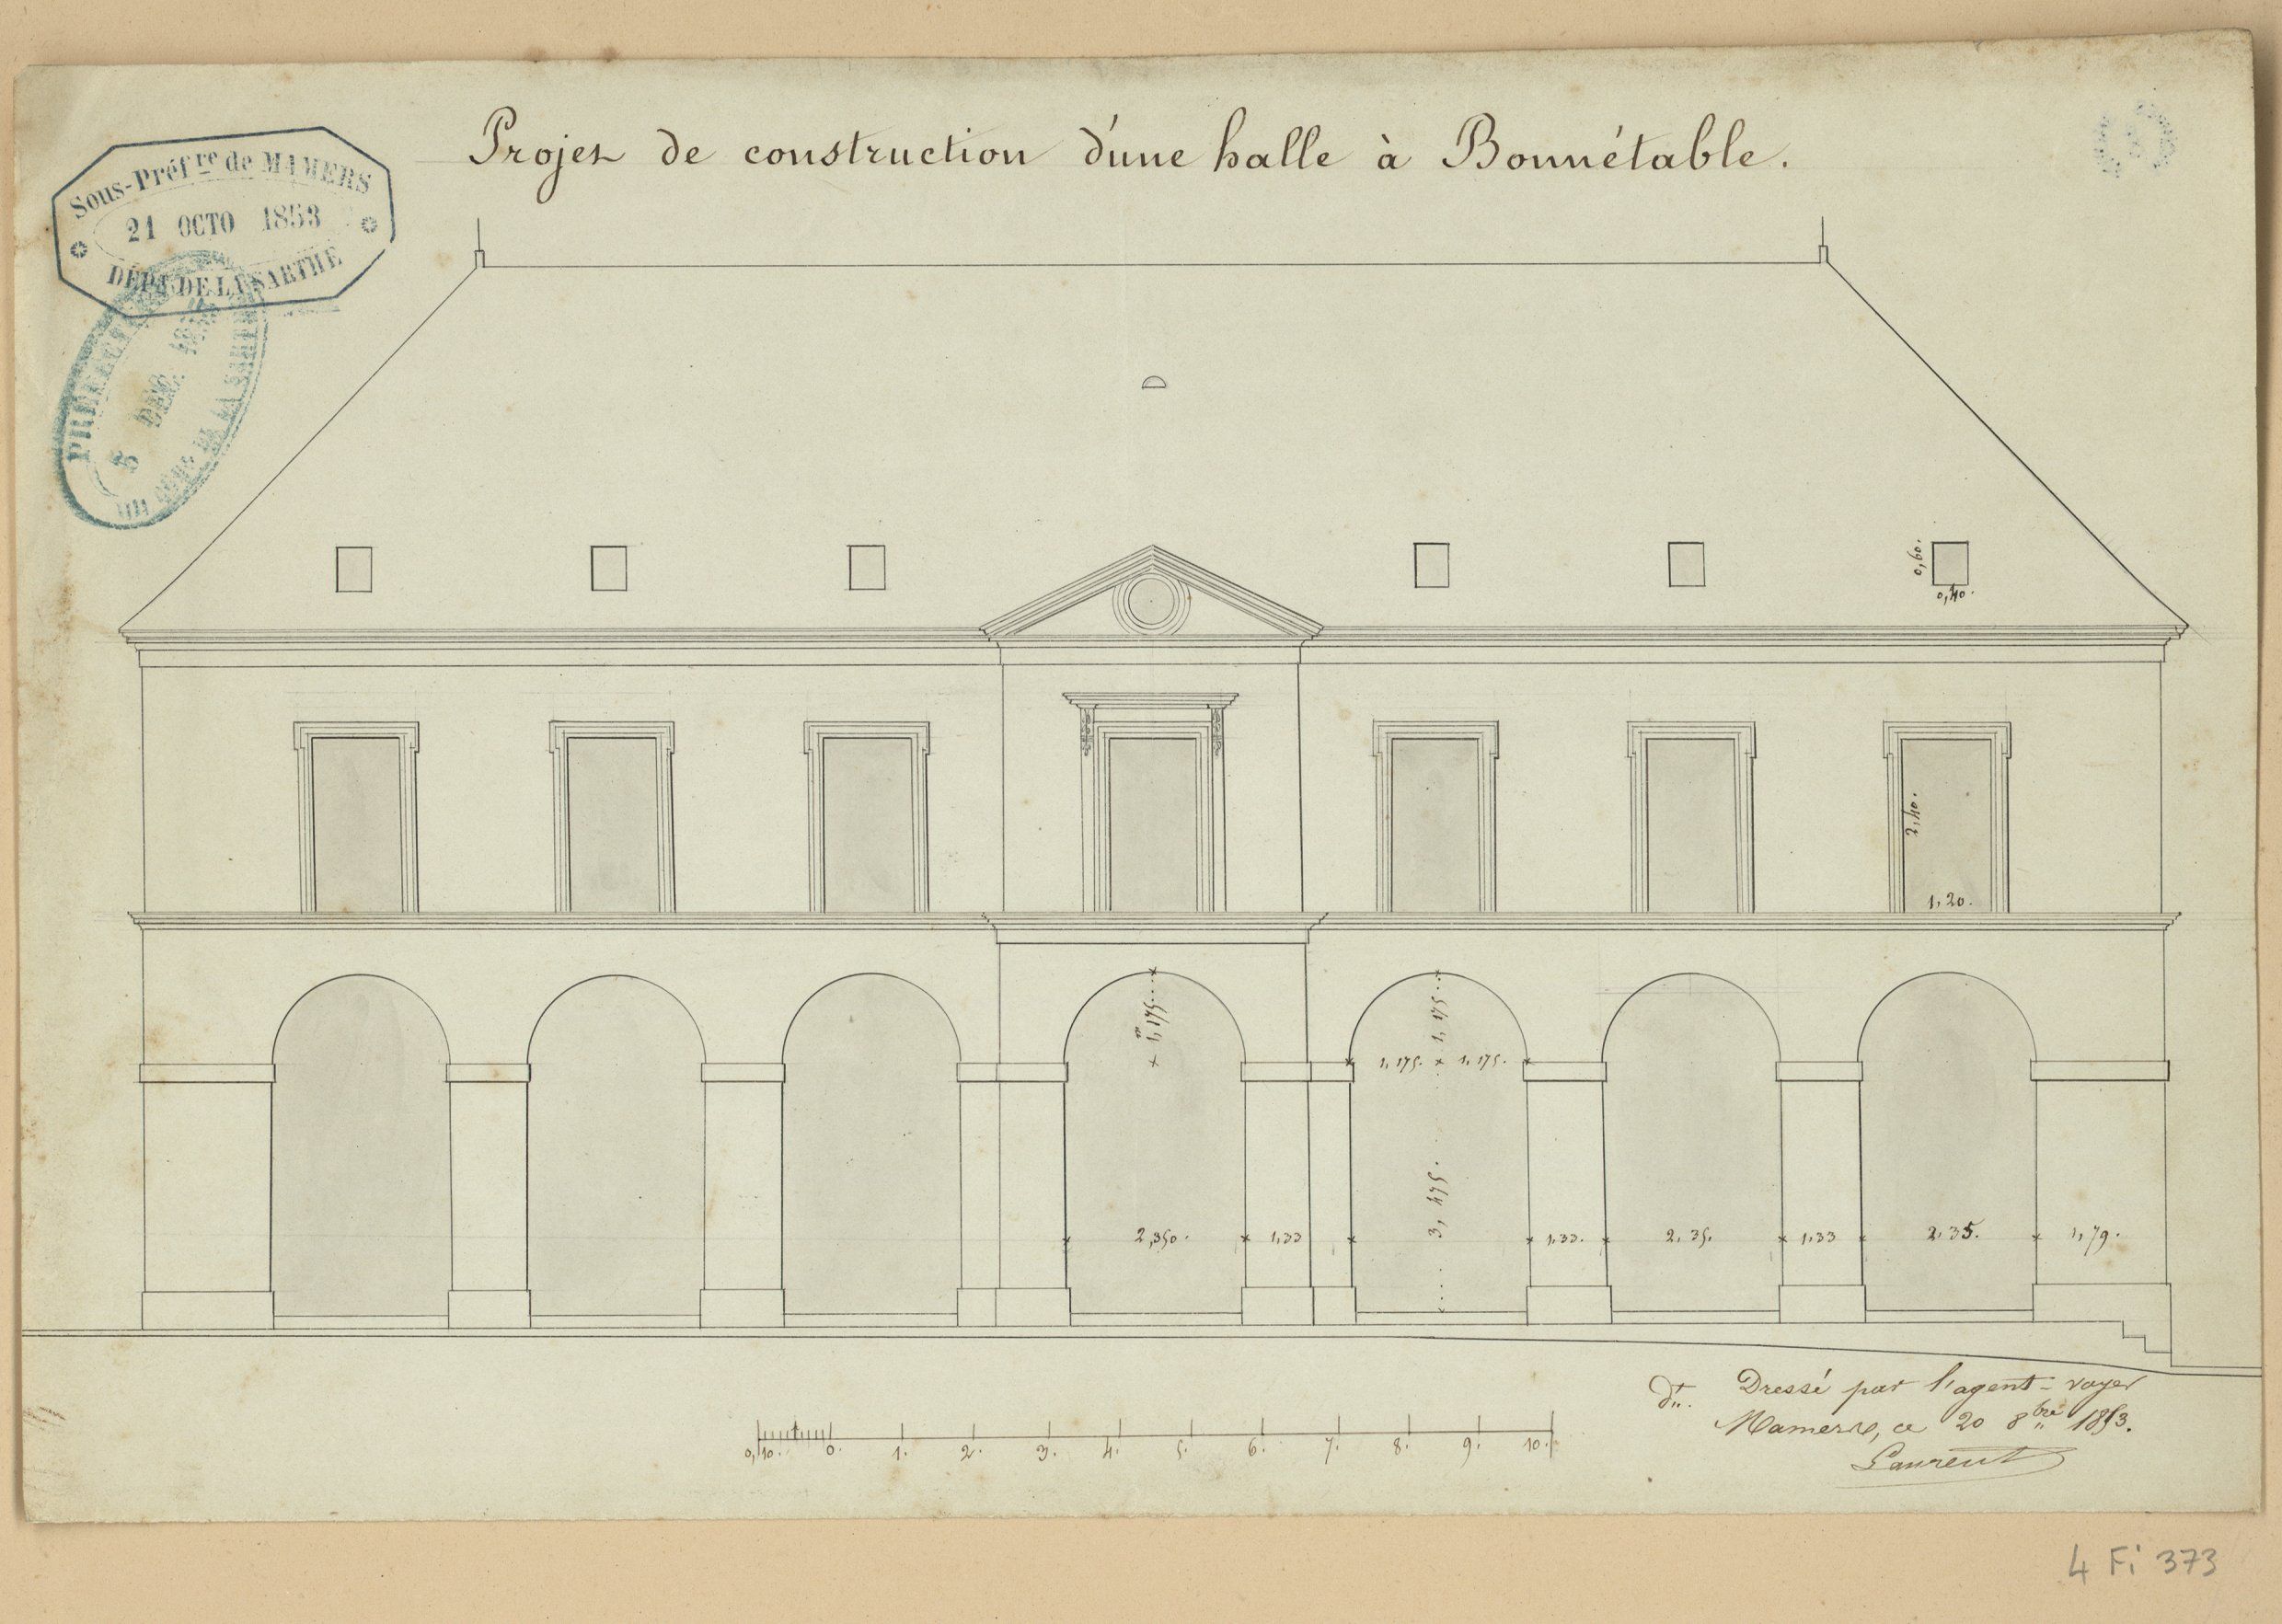 Projet de construction d'une halle à Bonnétable.
Sous-Préf.re de MAMERS
21 OCTO 1853
DÉPT DE LA SARTHE
PRÉFECTURE
5 DEC.
DE LA SARTHE
0,60.
0,40.
2,40.
1,20.
1,175.
1,175.
1,175. 1,175.
3,475.
2,350. 1,33 1.33. 2.35. 1.33 2.35. 1,79.
0,10. 0. 1. 2. 3. 4. 5. 6. 7. 8. 9. 10.
Dressé par l'agent-voyer
Mamers, ce 20 8bre 1853.
Laurent
4 Fi 373